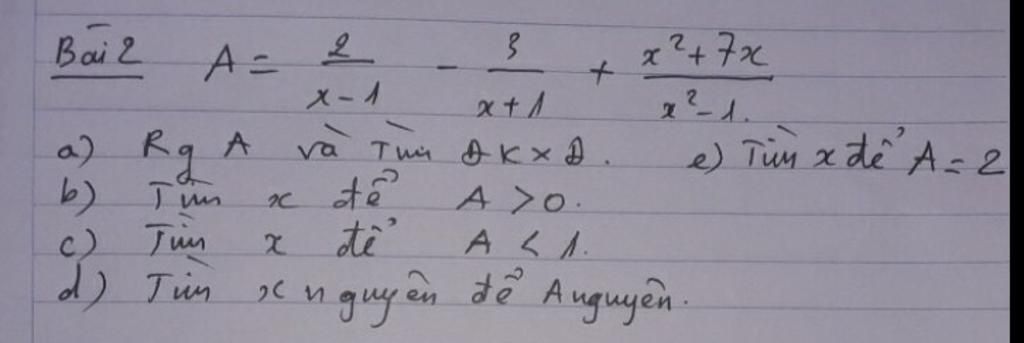 Bài 2 A = 2/(x-1) - 3/(x+1) + (x²+7x)/(x²-1).
a) Rg A và Tìm ĐKXĐ. e) Tìm x để A = 2
b) Tìm x để A > 0.
c) Tìm x để A < 1.
d) Tìm x nguyên để A nguyên.